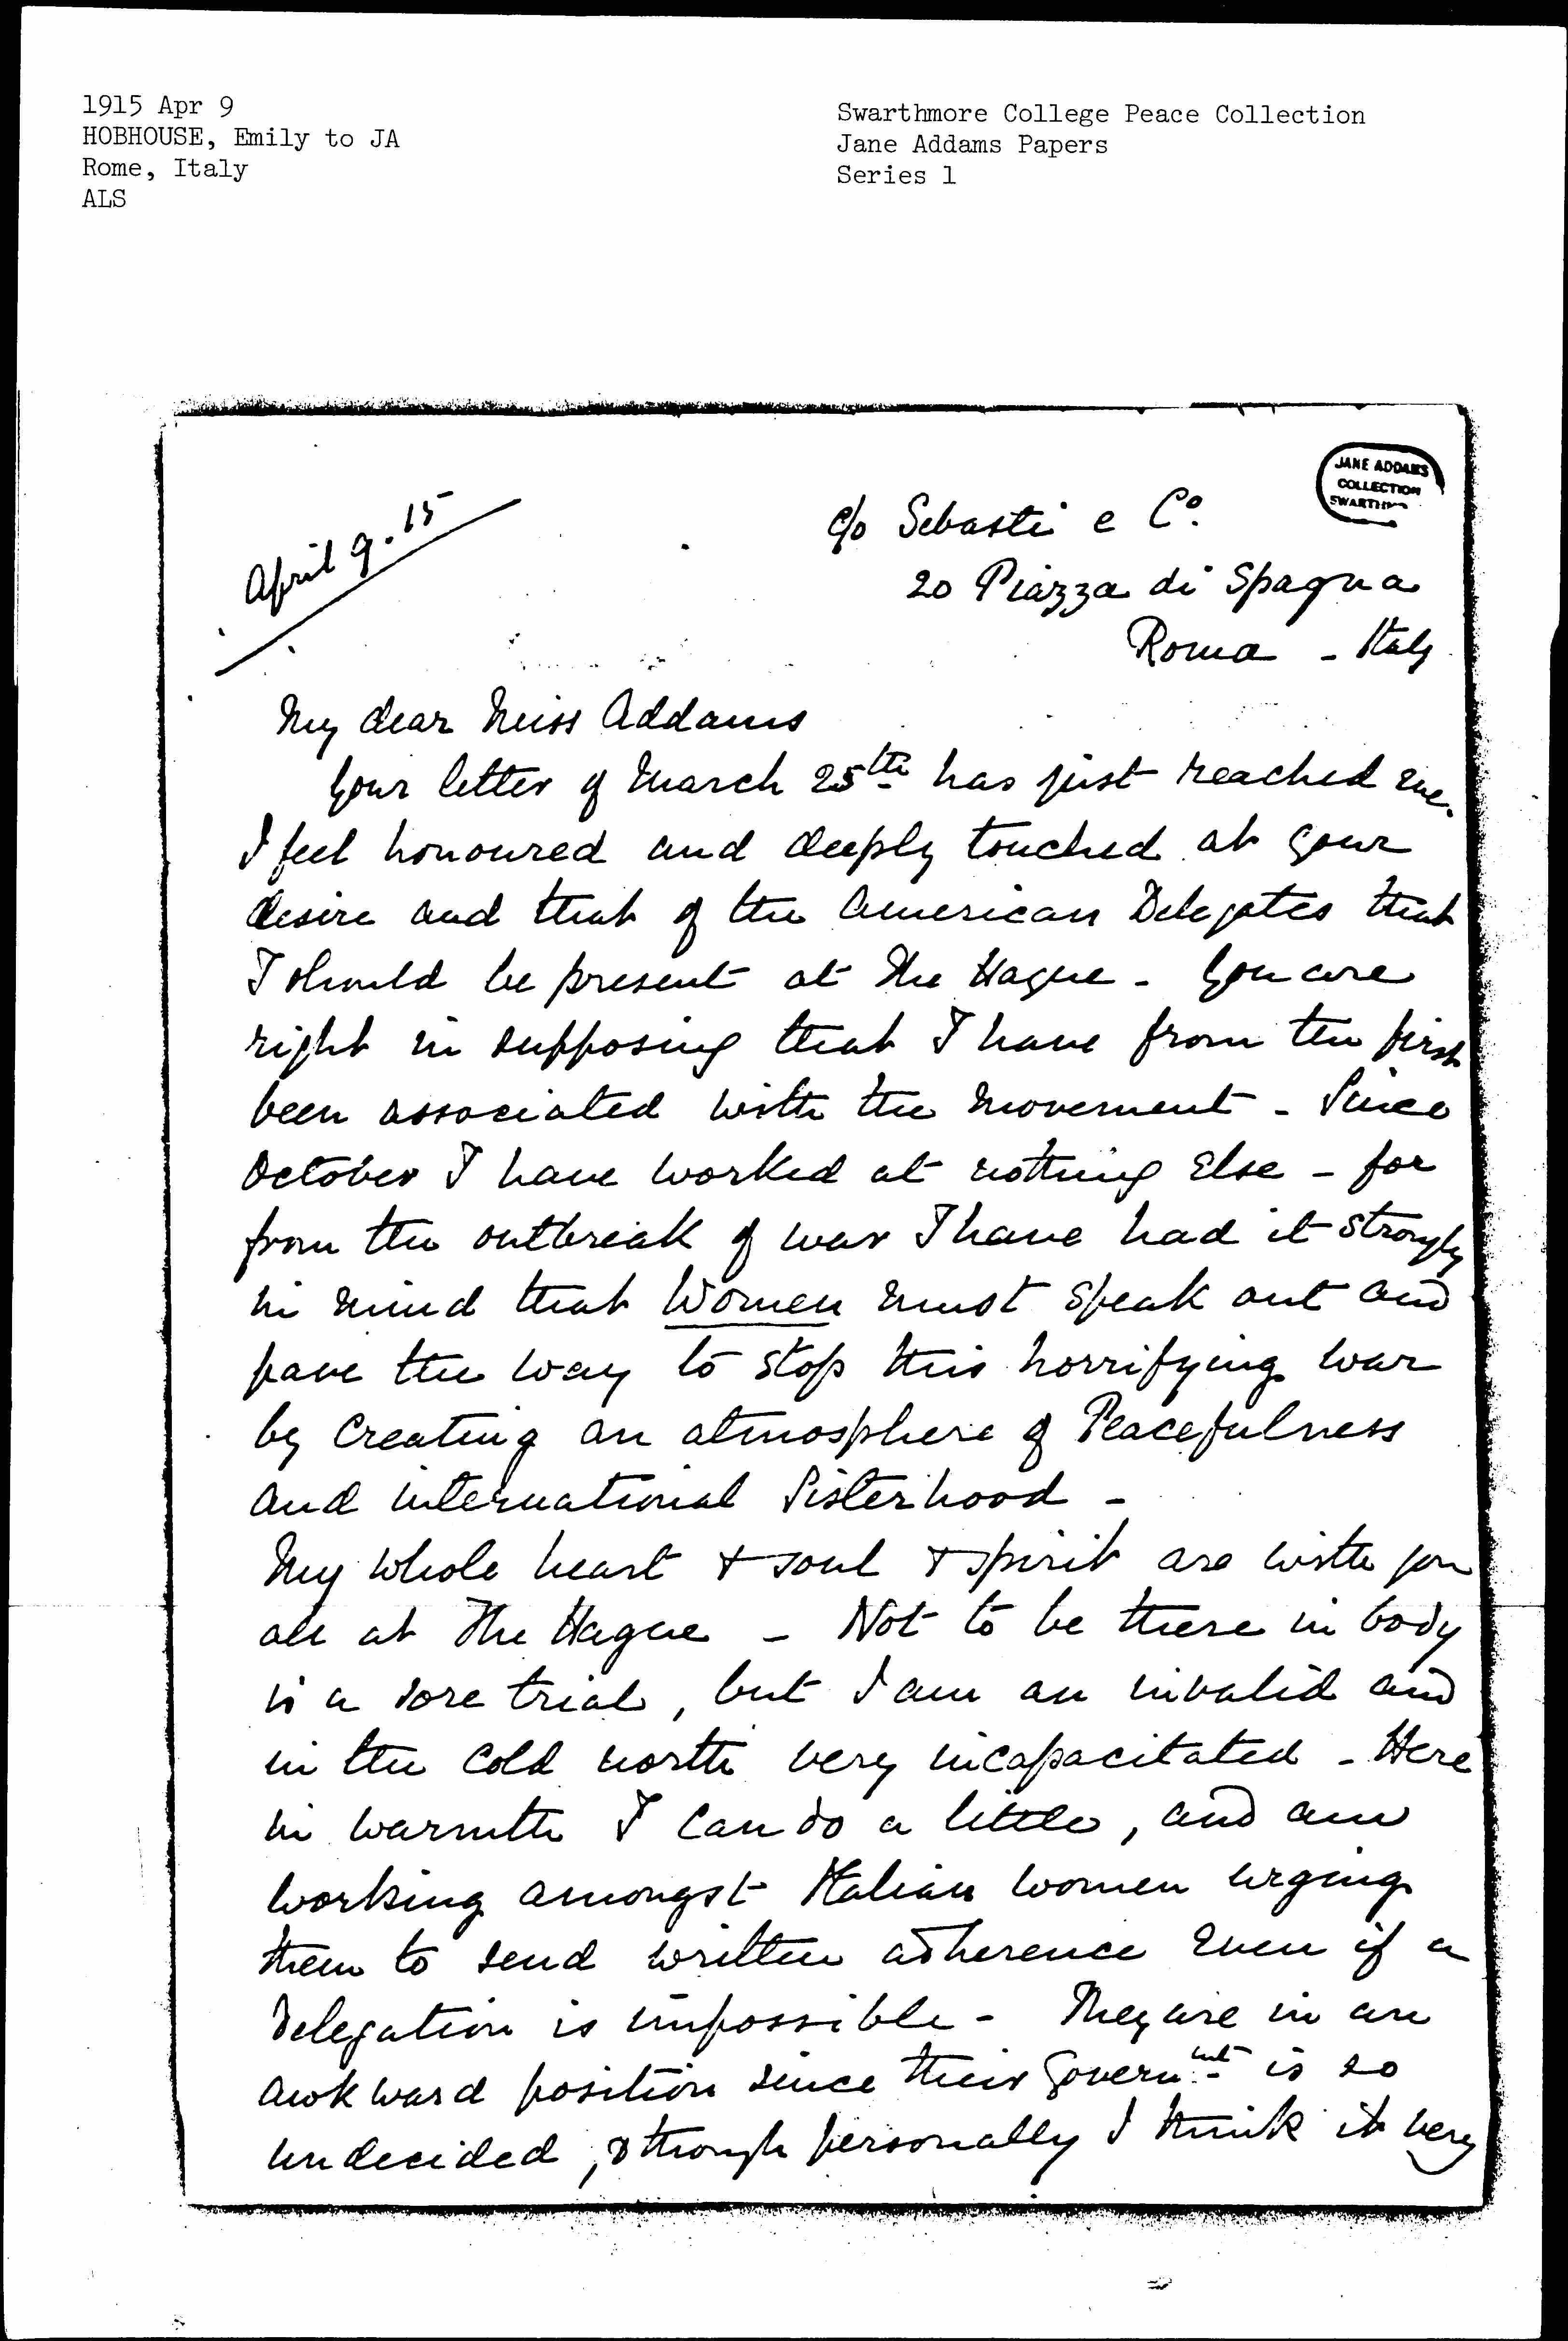 1915 Apr 9
HOBHOUSE, Emily to JA
Rome, Italy
ALS
Swarthmore College Peace Collection
Jane Addams Papers
Series 1
JANE ADDAMS
COLLECTION
April 9. 15
c/o Sebasti e Co.
20 Piazza di Spagna
Roma - Italy
My dear Miss Addams
Your letter of March 25th has just reached me.
I feel honoured and deeply touched at your
desire and that of the American Delegates that
I should be present at The Hague - You are
right in supposing that I have from the first
been associated with the movement - Since
October I have worked at nothing else - for
from the outbreak of war I have had it strongly
in mind that Women must speak out and
pave the way to stop this horrifying war
by creating an atmosphere of Peacefulness
and international Sisterhood -
My whole heart & soul & spirit are with you
all at The Hague - Not to be there in body
is a sore trial, but I am an invalid and
in the cold north very incapacitated - Here
in warmth I can do a little, and am
working amongst Italian women urging
them to send written adherence even if a
delegation is impossible - They are in an
awkward position since their Governmt is so
undecided, & though personally I think it very